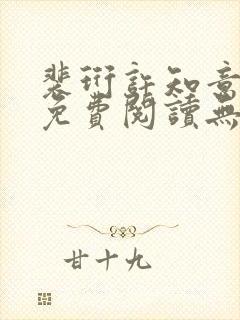 裴衍許知意
免費閱讀無
甘十九